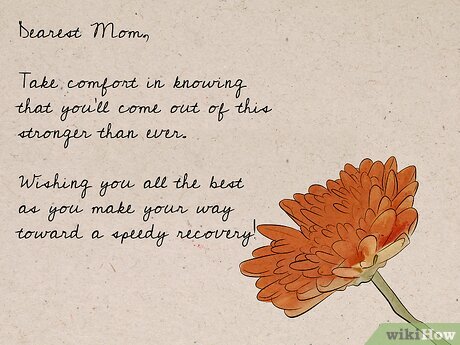 Dearest Mom,
Take comfort in knowing
that you'll come out of this
stronger than ever.
Wishing you all the best
as you make your way
toward a speedy recovery!
wikiHow